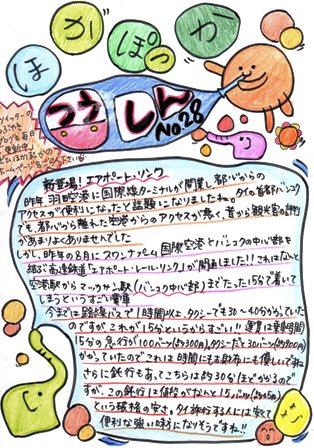 ほかぽっか
つうしん
No.28
ツイッター
ブログも毎日
更新中
新登場!エアポート・リンク
昨年羽田空港に国際線ターミナルが開業し都心からの
アクセスが便利になったと話題になりましたね。タイの首都バンコク
でも、都心から離れた空港からのアクセスが悪く、昔から観光客の評判
があまりよくありませんでした
しかし、昨年の8月にスワンナプーム国際空港とバンコクの中心部を
結ぶ高速鉄道「エアポート・レール・リンク」が開通しました!!これはなんと
空港駅からマッカサン駅(バンコク中心部)までたった15分で着いて
しまうというすごい電車
今までは路線バスで1時間以上、タクシーでも30~40分かかっていた
のですがこれが15分というからすごい!!運賃は乗車時間
15分の急行が100バーツ(約300円)、タクシーだと30バーツ(約900円)
かかっていたのでこれは時間にもお財布にも優しいですね
さらに鈍行もあってこちらは約30分ほどかかるので
すが、この鈍行は価格がなんと15バーツ(約45円)
という破格の安さ。タイ旅行する人には安くて
便利な強い味方になりそうですね!!